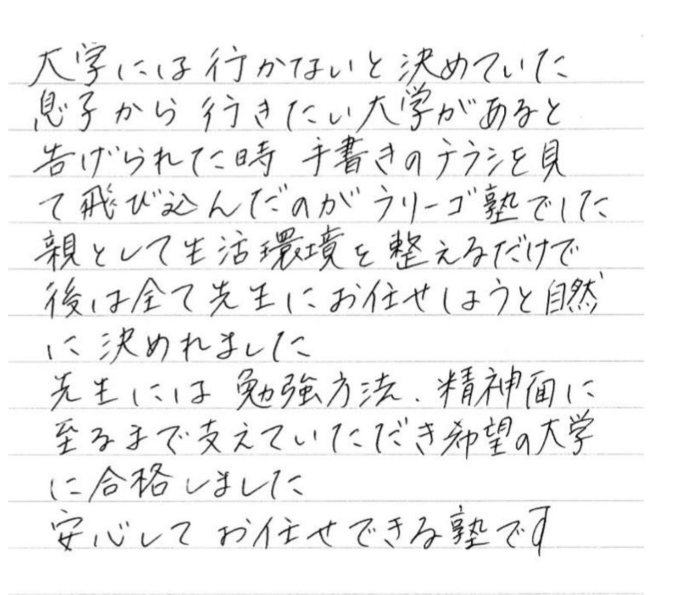 大学には行かないと決めていた
息子から行きたい大学があると
告げられてた時 手書きのチラシを見
て飛び込んだのがラリーゴ塾でした
親として生活環境を整えるだけで
後は全て先生にお任せしようと自然
に決めれました
先生には勉強方法、精神面に
至るまで支えていただき希望の大学
に合格しました
安心してお任せできる塾です